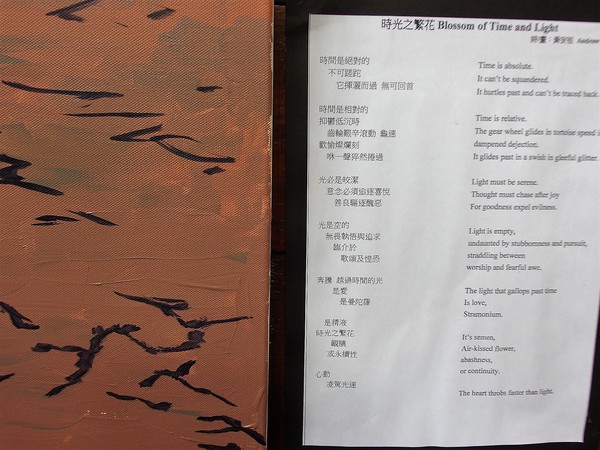 時光之繁花 Blossom of Time and Light
詩/畫：黃安祖 Andrew
時間是絕對的
不可蹉跎
它揮灑而過 無可回首
時間是相對的
抑鬱低沉時
齒輪艱辛滾動 龜速
歡愉燦爛刻
咻一聲猝然捲過
光必是皎潔
意念必須追逐喜悅
善良驅逐醜惡
光是空的
無畏執悟與追求
臨介於
歌頌及惶恐
奔騰 越過時間的光
是愛
是曼陀羅
是精液
時光之繁花
靦腆
或永續性
心動
凌駕光速
Time is absolute.
It can't be squandered.
It hurtles past and can't be traced back.
Time is relative.
The gear wheel glides in tortoise speed i
dampened dejection.
It glides past in a swish in gleeful glimer.
Light must be serene.
Thought must chase after joy
For goodness expel evilness.
Light is empty,
undaunted by stubbornness and pursuit,
straddling between
worship and fearful awe.
The light that gallops past time
Is love,
Stramonium.
It's semen,
Air-kissed flower,
abashness,
or continuity.
The heart throbs faster than light.